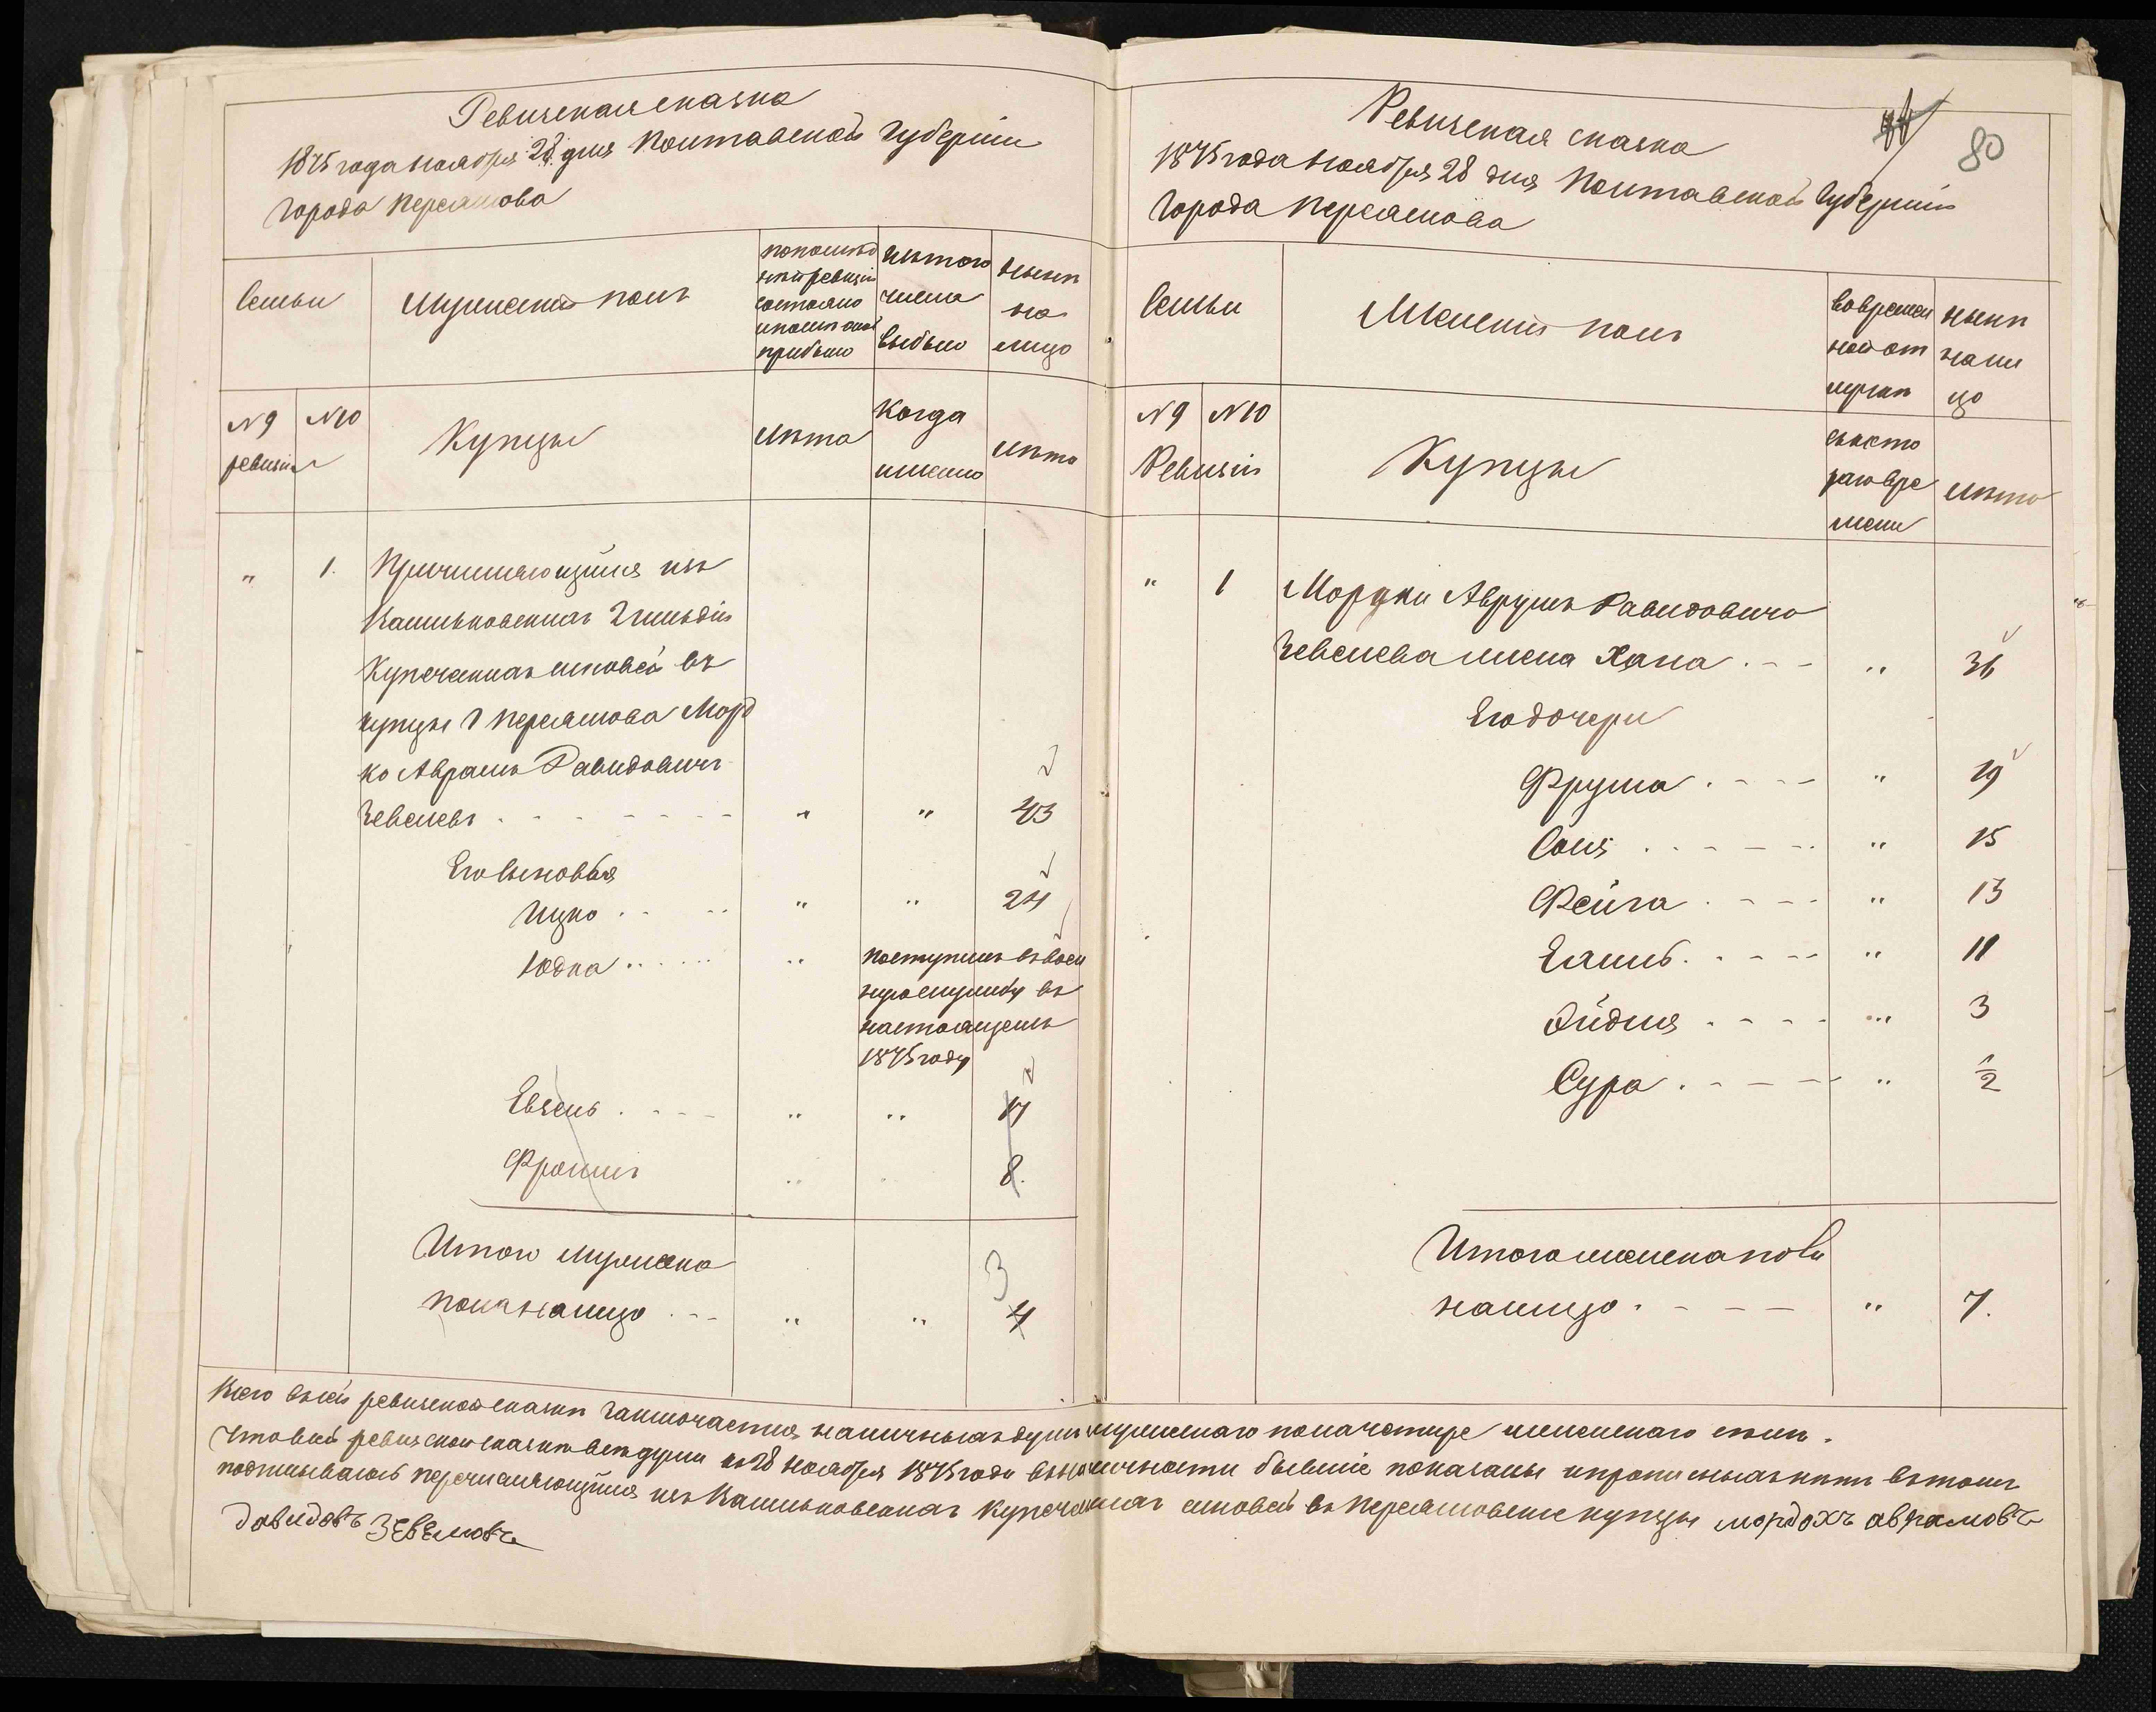 Ревизская сказка
1875 года ноября 28 дня Полтавской губернии
Города Переяслова
Семьи
Мужеский полъ
по последней ревизіи состояло и после оной прибыло
изъ того числа выбыло
ныне на лицо
№ 9
№ 10
ревизіи
Купцы
Лета
Когда именно
Лета
„ 1. Причисляющійся изъ
Каменновскихъ 2 гильдіи
Купеческихъ сыновей въ
купцы г Переяслова Морд
ко Аврамъ Давидовичъ
Зевелевъ . - - - - „ „ 43
Его сыновья
Ицко . . - „ „ 24
Юдка . . . . . „ поступилъ въ воен
ную службу въ
настоящемъ
1875 году
Евзель . - - - „ „ 17
Фроимъ „ „ 8.
Итого мужеска 3
пола на лицо . - - „ „ 4
Ревизская сказка
80
1875 года ноября 28 дня Полтавской Губерніи
Города Переяслова
Семьи
Женский полъ
Во временной отлучке
ныне на лицо
№ 9
№ 10
Ревизіи
Купцы
съ котораго времени
Лета
„ 1 Мордки Аврумъ Давидовича
Зевелева жена Хана . - - „ 36
Его дочери
Фрума . - - - „ 19
Соня . - - - - „ 15
Фейга . - - - „ 13
Ейдля . - - - „ 3
Сура . - - - - „ 1/2
Итого женска пола
на лицо . - - - „ 7.
Всего в сей ревизской сказке заключается наличныхъ душъ мужескаго пола четыре женскаго семь.
Что в сей ревизской сказке все души по 28 ноября 1875 года въ наличности бывшіе показаны и прописныхъ нетъ въ томъ
подписываюсь перечисляющійся изъ Каменновскихъ Купеческихъ сыновей въ Переяславские купцы мордохъ аврамовъ
Давидовъ Зевелювъ